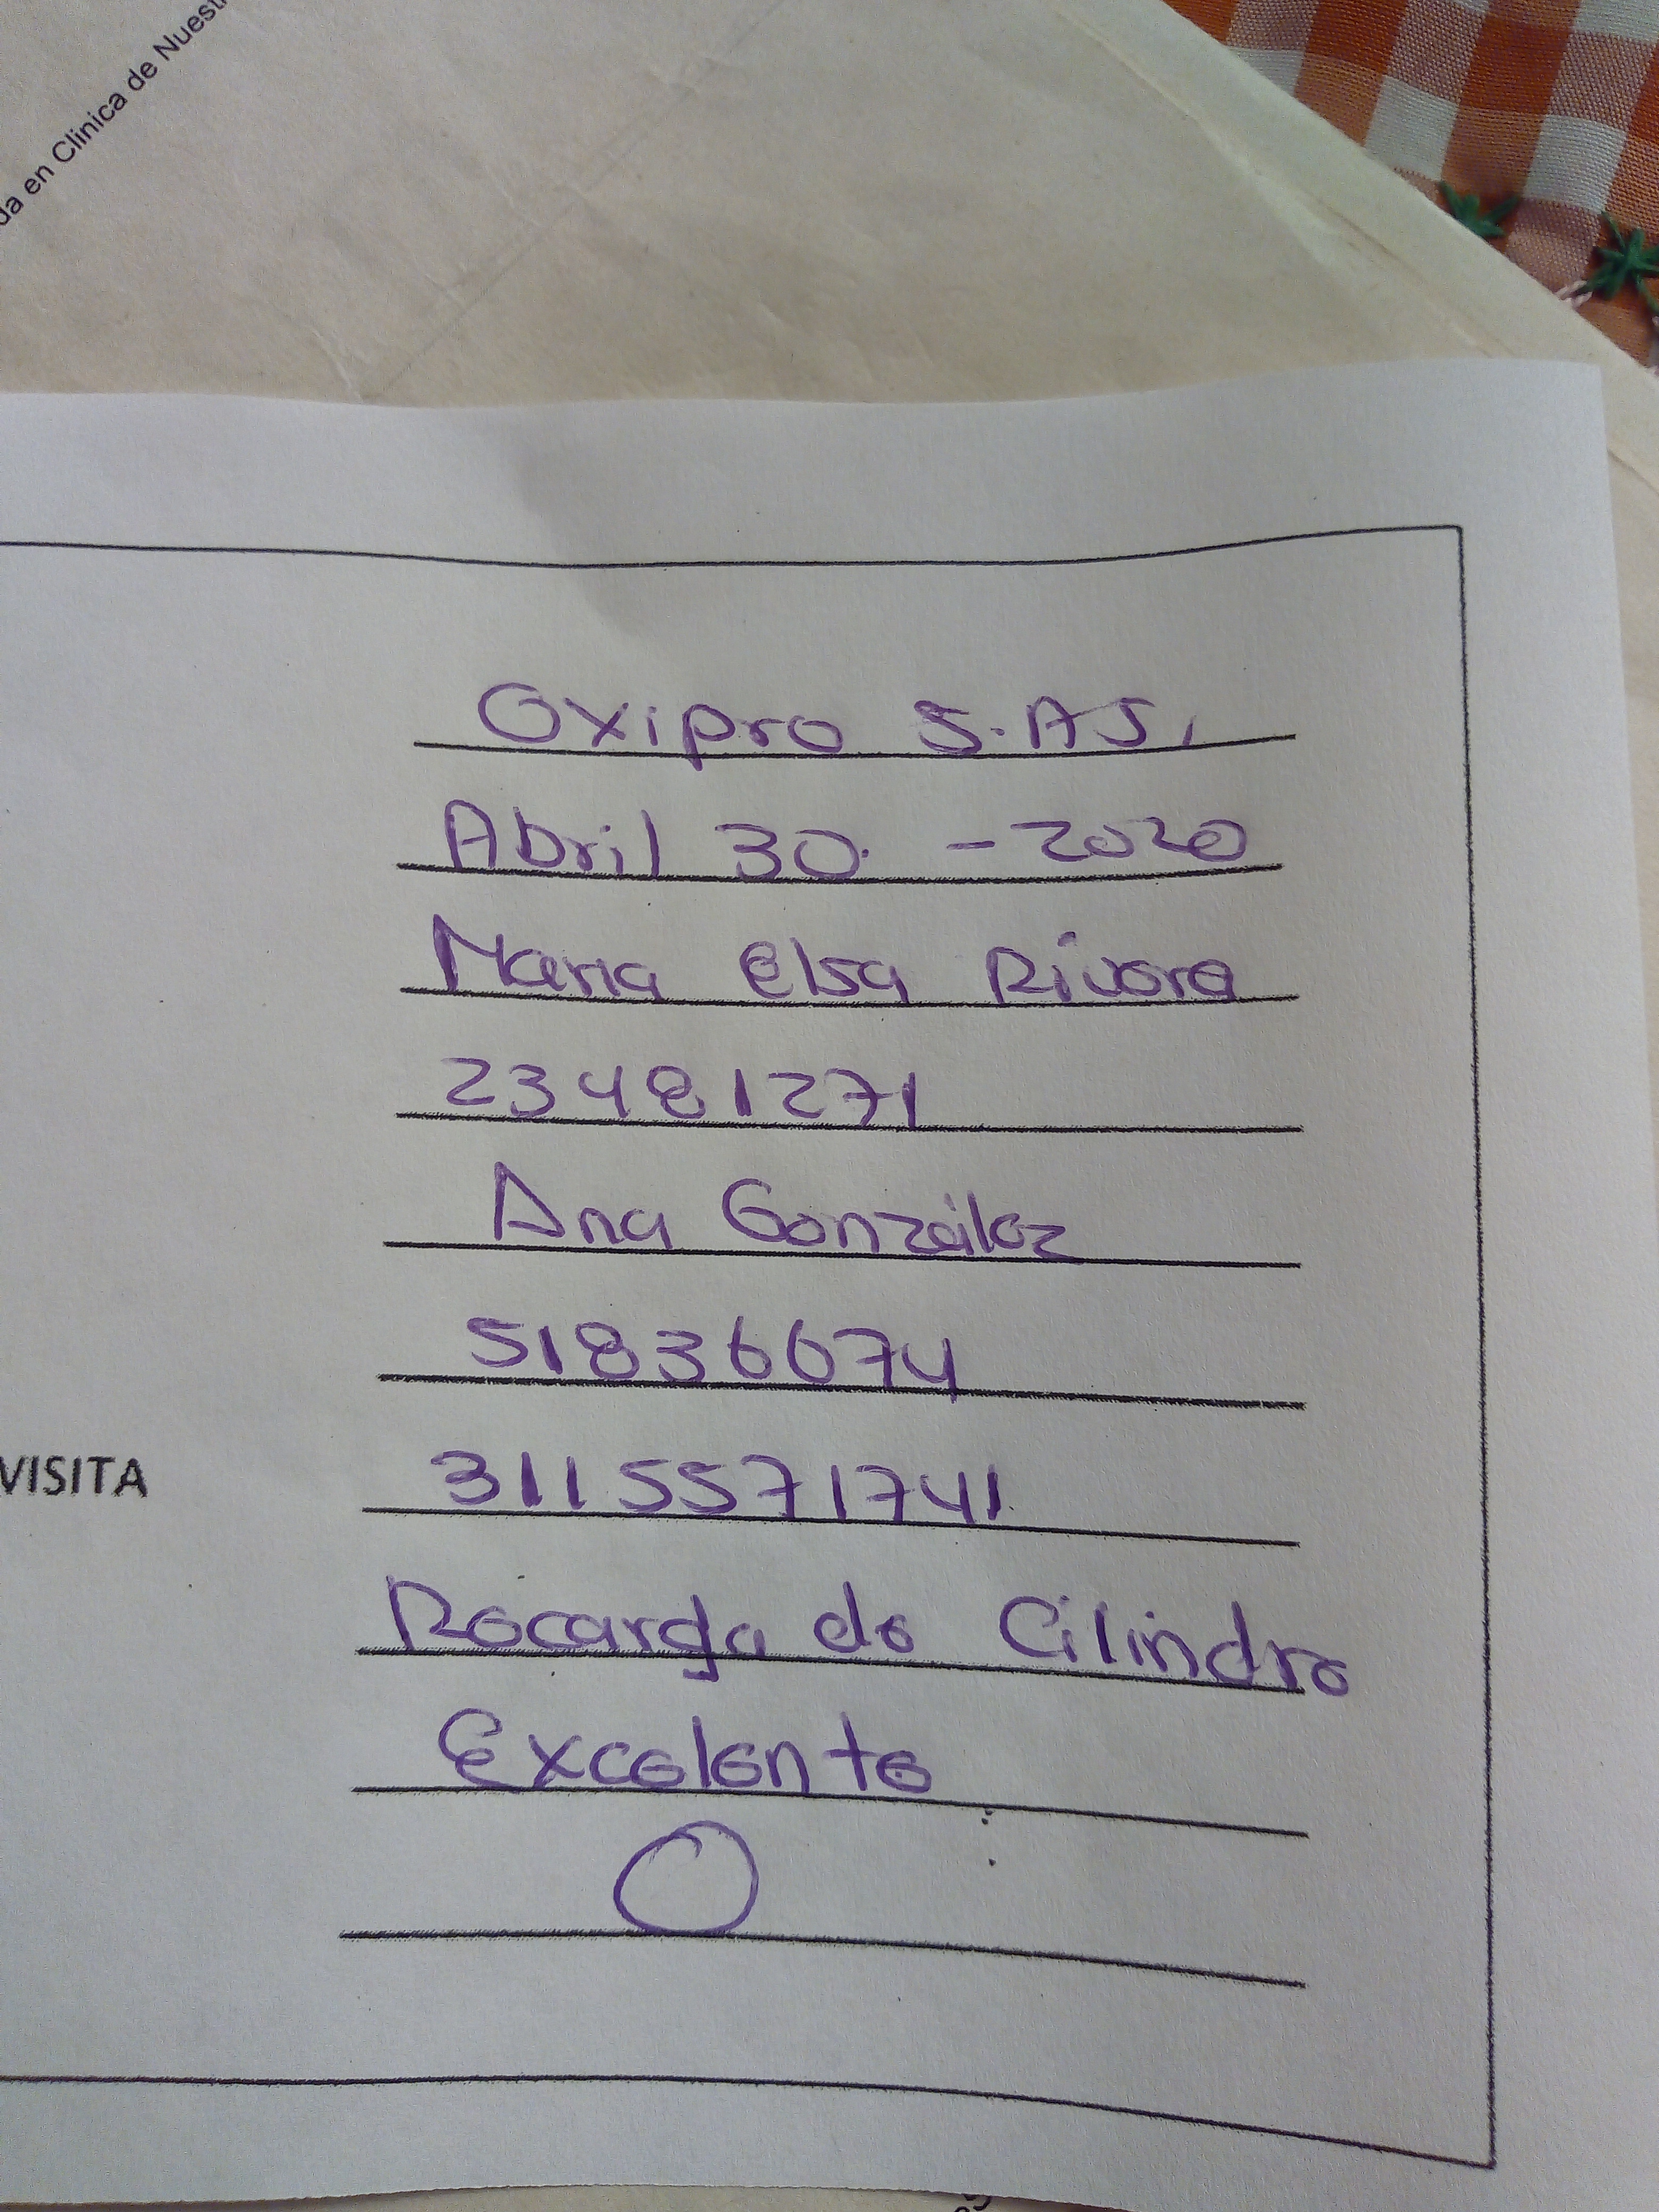 da en Clinica de Nuest
Oxipro S.AS.
Abril 30. - 2020
Maria elsa Rivera
23481271
Ana González
51836674
VISITA 3115571741
Recarga de Cilindro
Excelente